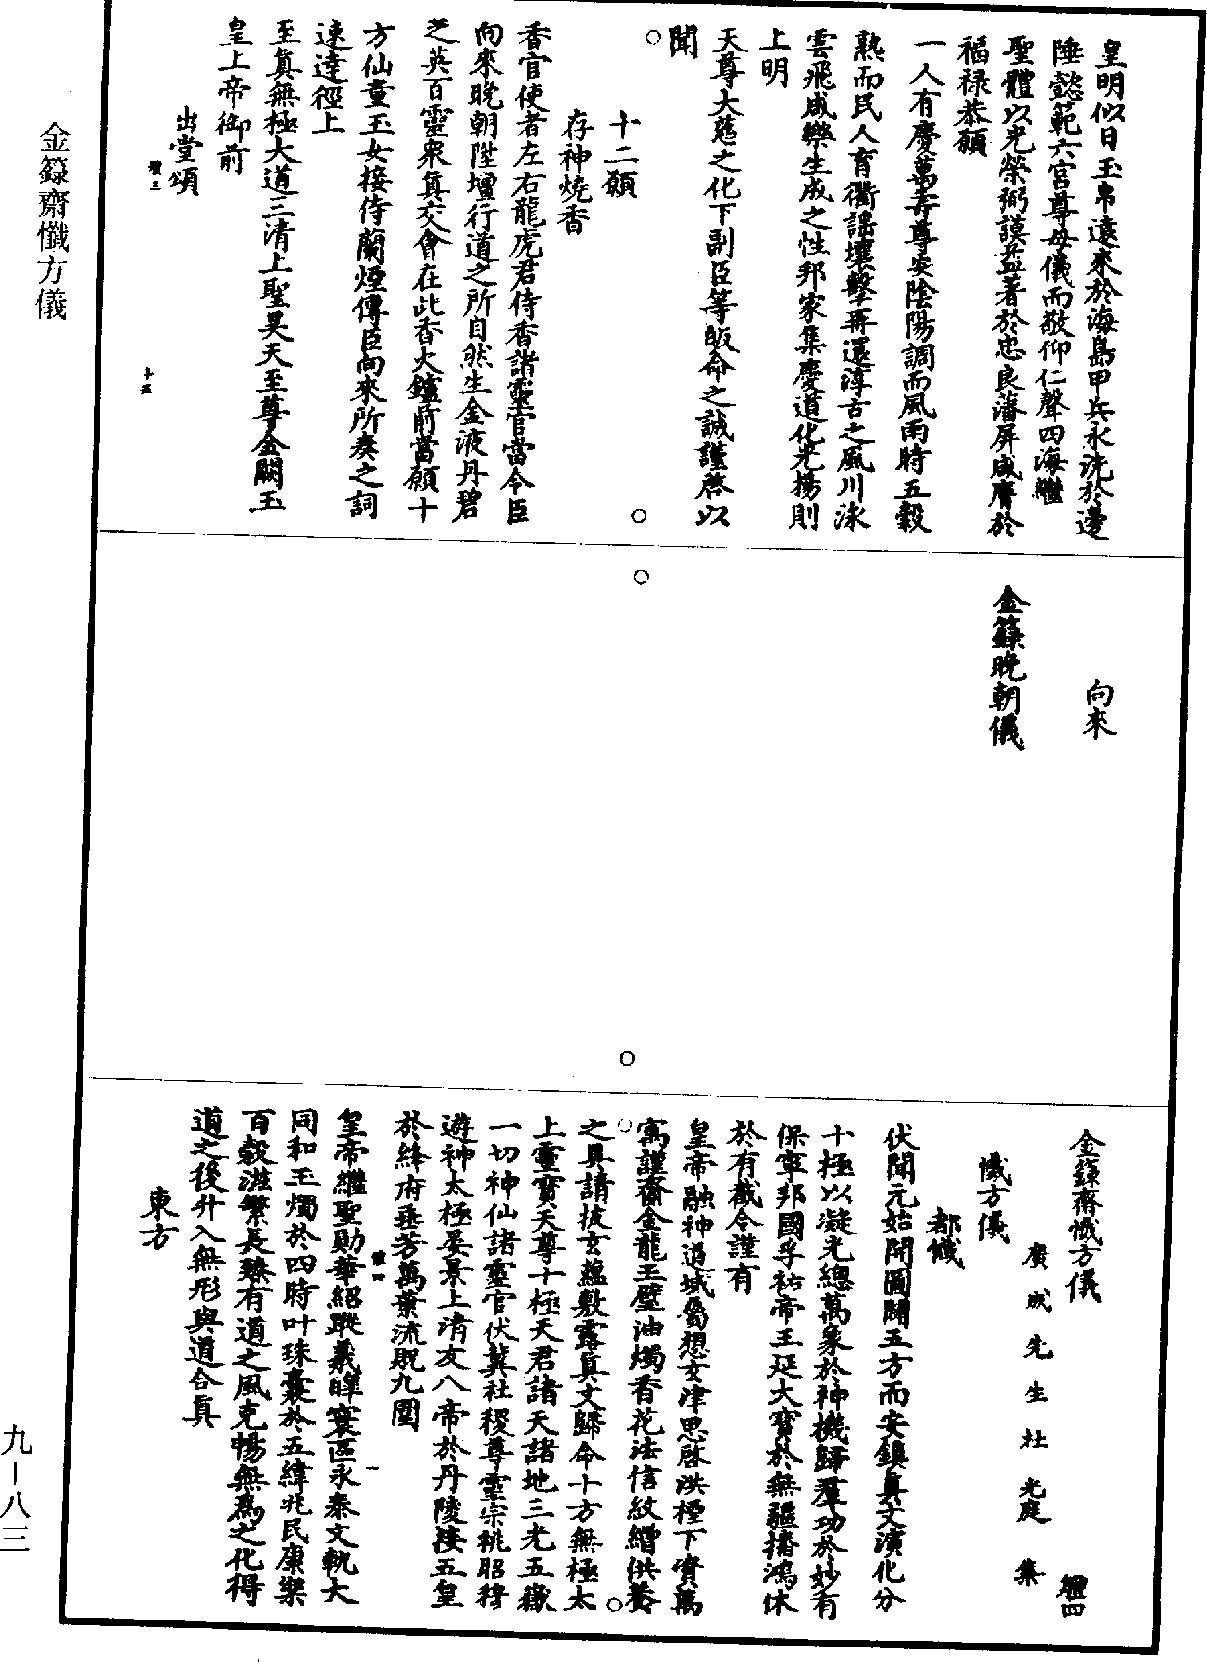 皇明似日玉帛遠來於海島甲兵永洗於邊
陲懿範六宮尊母儀而敬仰仁聲四海繼
聖體以光榮弼謨益著於忠良藩屏咸膺於
福祿恭願
一人有慶萬壽尊安陰陽調而風雨時五穀
熟而民人育衢謡壤擊再還淳古之風川泳
雲飛咸樂生成之性邦家集慶道化光揚則
上明
天尊大慈之化下副臣等皈命之誠謹啓以
聞
十二願
存神燒香
香官使者左右龍虎君侍香諸靈官當令臣
向來晚朝陞壇行道之所自然生金液丹碧
芝英百靈衆真交會在此香火鑪前當願十
方仙童玉女接侍蘭煙傳臣向來所奏之詞
速達徑上
至真無極大道三清上聖昊天至尊金闕玉
皇上帝御前
出堂頌
向來
金籙晚朝儀
金籙齋懺方儀
廣成先生杜光庭集
懺方儀
都懺
伏聞元始開圖闢五方而安鎮真文演化分
十極以凝光總萬象於神機歸羣功於妙有
保寧邦國孚祐帝王延大寶於無疆播鴻休
於有截今謹有
皇帝融神道域屬想玄津思啓洪禋下賓萬
寓謹齎金龍玉璧油燭香花法信紋繒供養
之具請披玄蘊敷露真文歸命十方無極太
上靈寶天尊十極天君諸天諸地三光五嶽
一切神仙諸靈官伏冀社稷尊靈宗祧昭穆
遊神太極晏景上清友八帝於丹陵揖五皇
於絳府垂芳萬葉流貺九圍
皇帝繼聖勛華紹蹤羲暤寰區永泰文軌大
同和玉燭於四時叶珠囊於五緯兆民康樂
百穀滋繁長臻有道之風克暢無爲之化得
道之後升入無形與道合真
東方
金籙齋懺方儀
九－八三